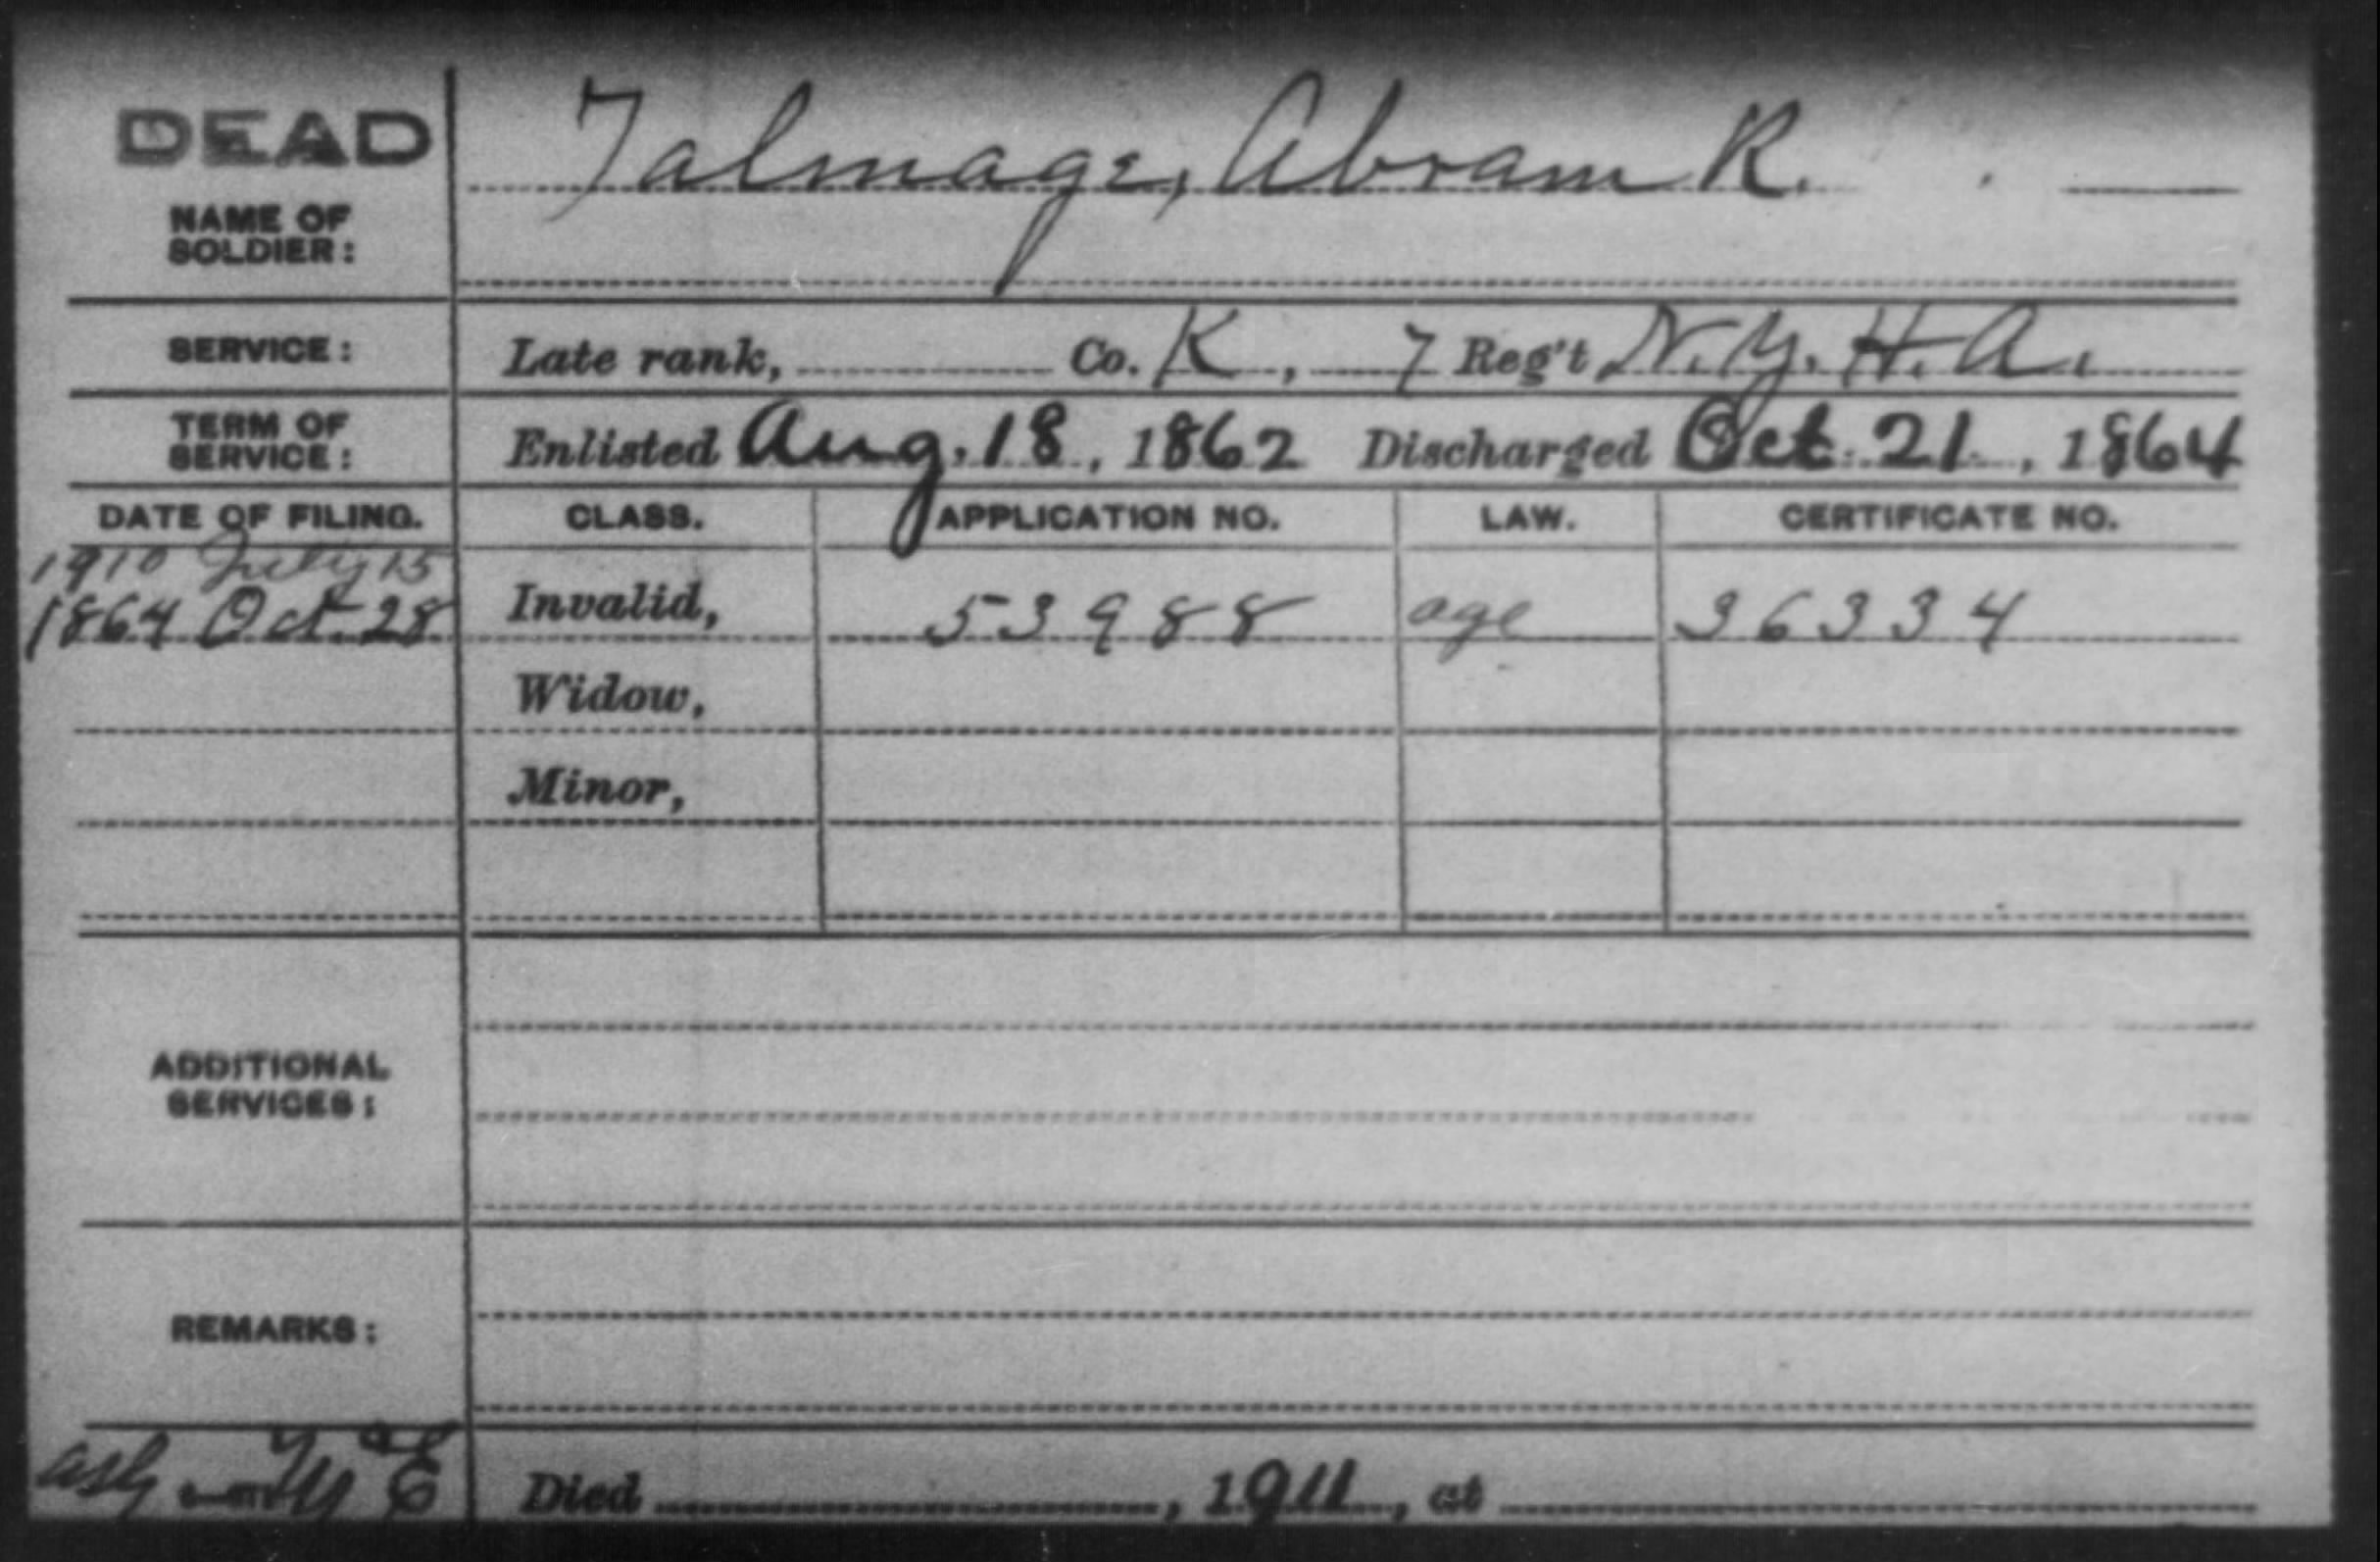 DEAD
NAME OF SOLDIER: Talmage, Abram R.
SERVICE: Late rank, Co. K, 7 Reg't N.Y. H. A.
TERM OF SERVICE: Enlisted Aug. 18, 1862 Discharged Oct. 21, 1864
DATE OF FILING. CLASS. APPLICATION NO. LAW. CERTIFICATE NO.
1910 July 15
1864 Oct. 28 Invalid, 53988 age 36334
Widow,
Minor,
ADDITIONAL SERVICES:
REMARKS:
Died , 1911, at